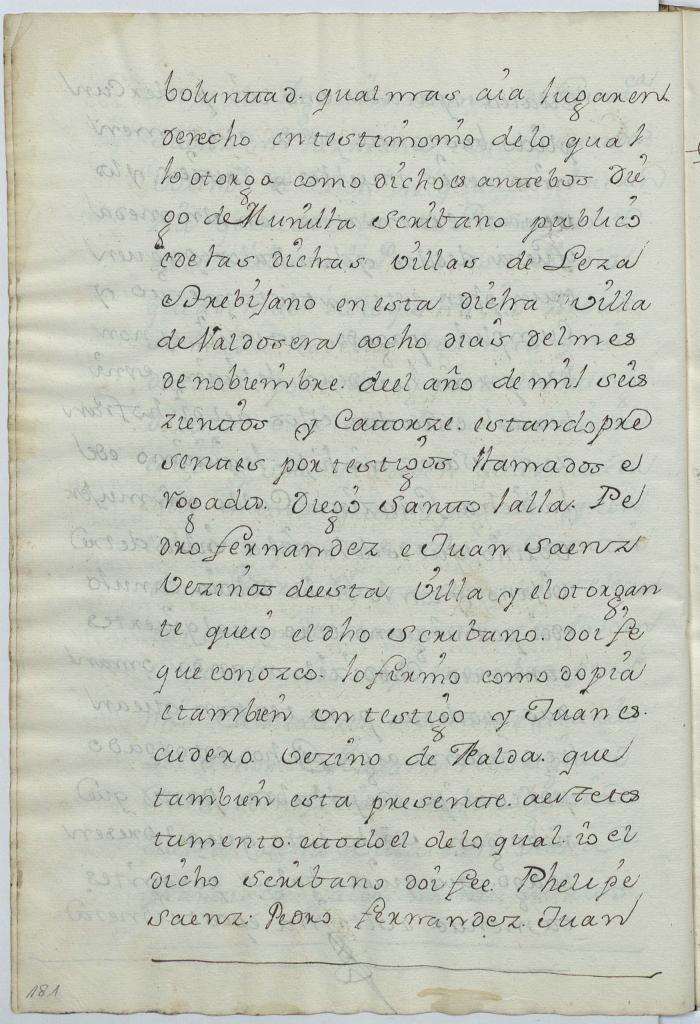 boluntad. qual mas aia lugar en
derecho en testimonio de lo qual
lo otorgo como dicho es antte bos Die
go de Murilla scribano publico
de las dichas villas de Leza
e Trebijano en esta dicha villa
de Valdosera ocho dias del mes
de nobiembre. deel año de mil seis
zienttos y Cattorze. estando pre
senttes por testigos llamados e
rogados. Diego Santto lalla. Pe
dro fernandez e Juan Saenz
Vezinos deesta Villa y el otorgan
te que io el dho scribano. doi fe
que conozco. lo firmo como dopia
e tambien un testigo y Juan es
cudero. Vezino de Tralda. que
tambien esta presentte. a este tes
tamento. e ttodo el de lo qual. io el
dicho scribano doi fee. Phelipe
Saenz. Pedro fernandez. Juan
181